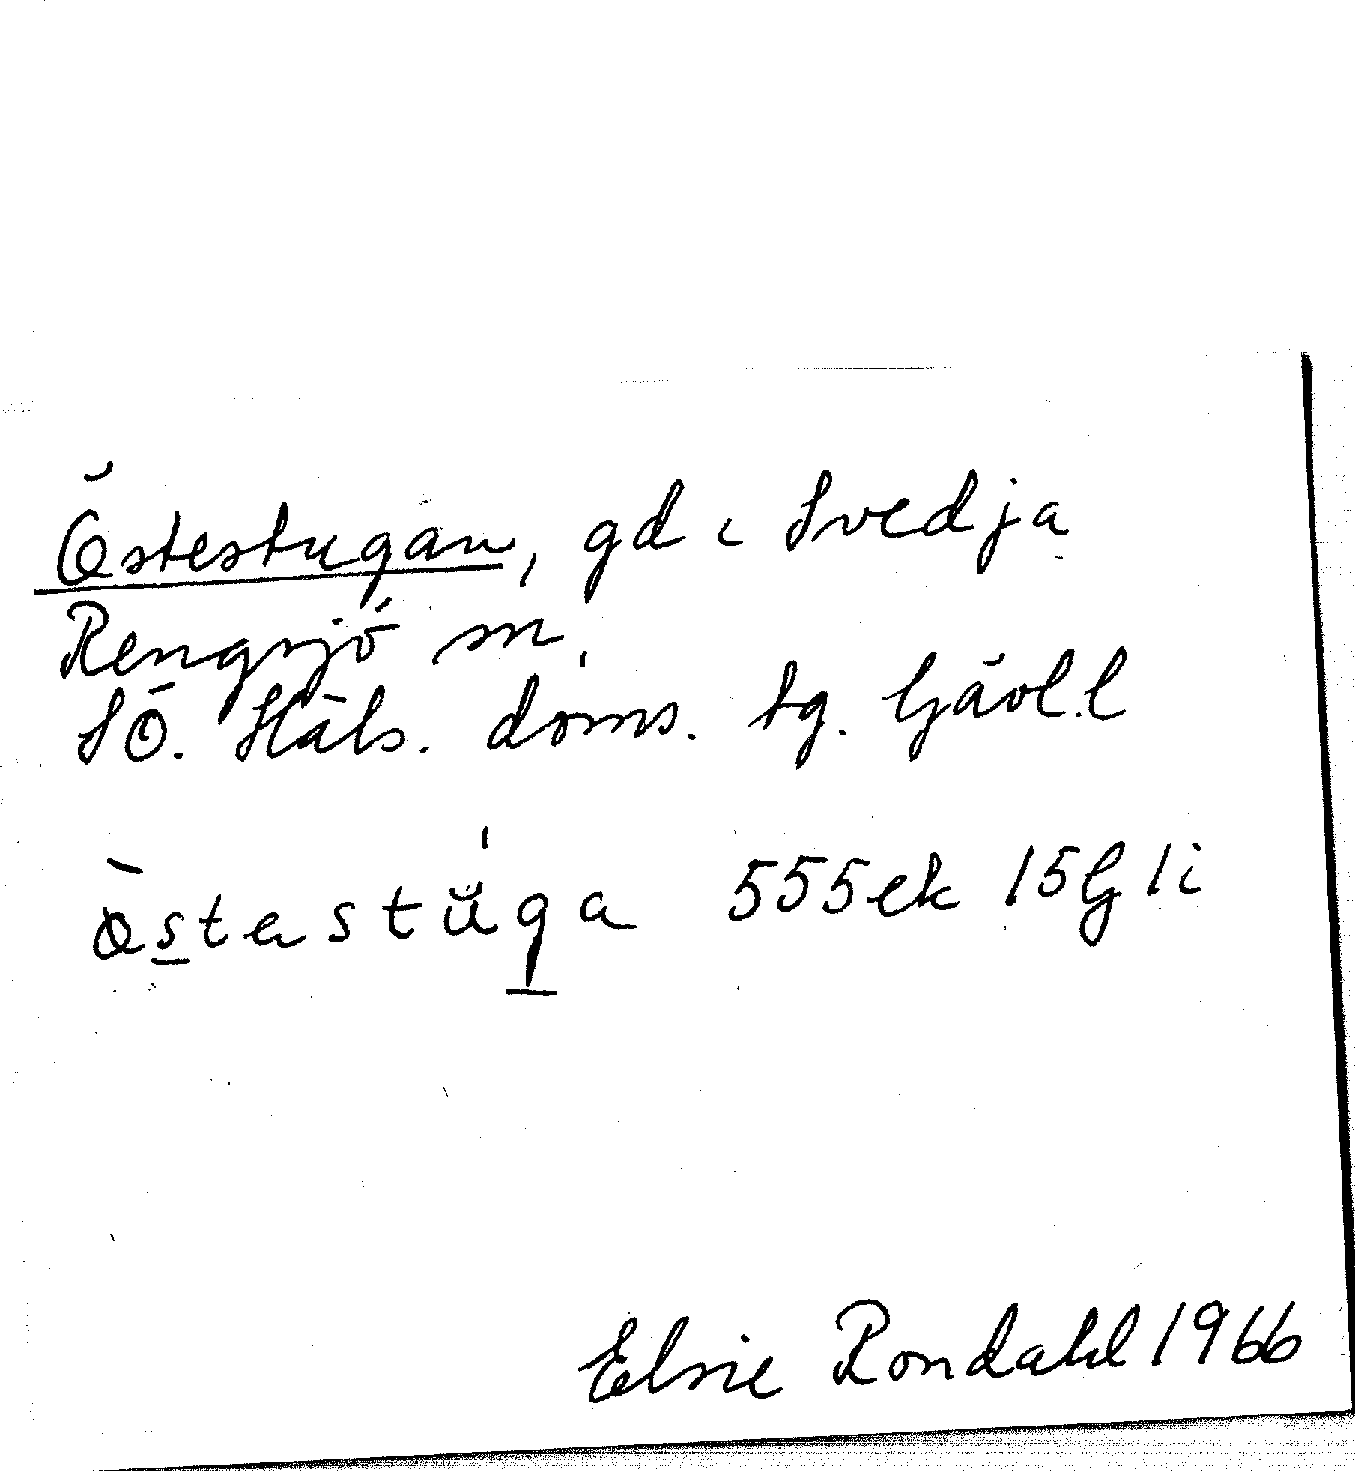 Östestugan, gd i Svedja
Rengsjö sn,
SÖ. Häls. doms. tg. Gävl.l
òstastŭ̍ga 555ek 15G1i
Elsie Rondahl 1966